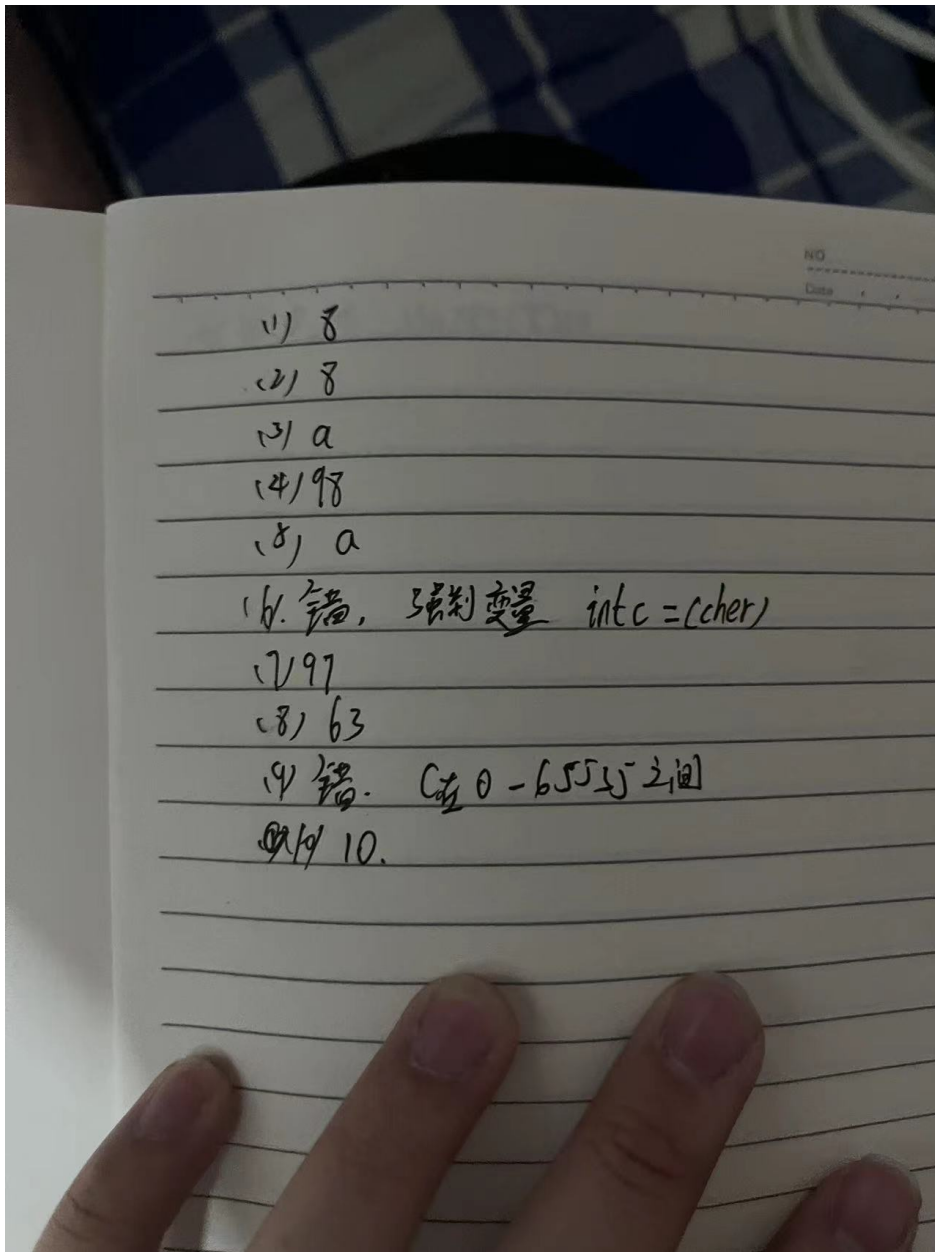 NO
Date
(1) 8
(2) 8
(3) a
(4) 98
(5) a
(6). 错, 强制变量 int c = (cher)
(7) 97
(8) 63
(9) 错. C在 0-65535之间
10.